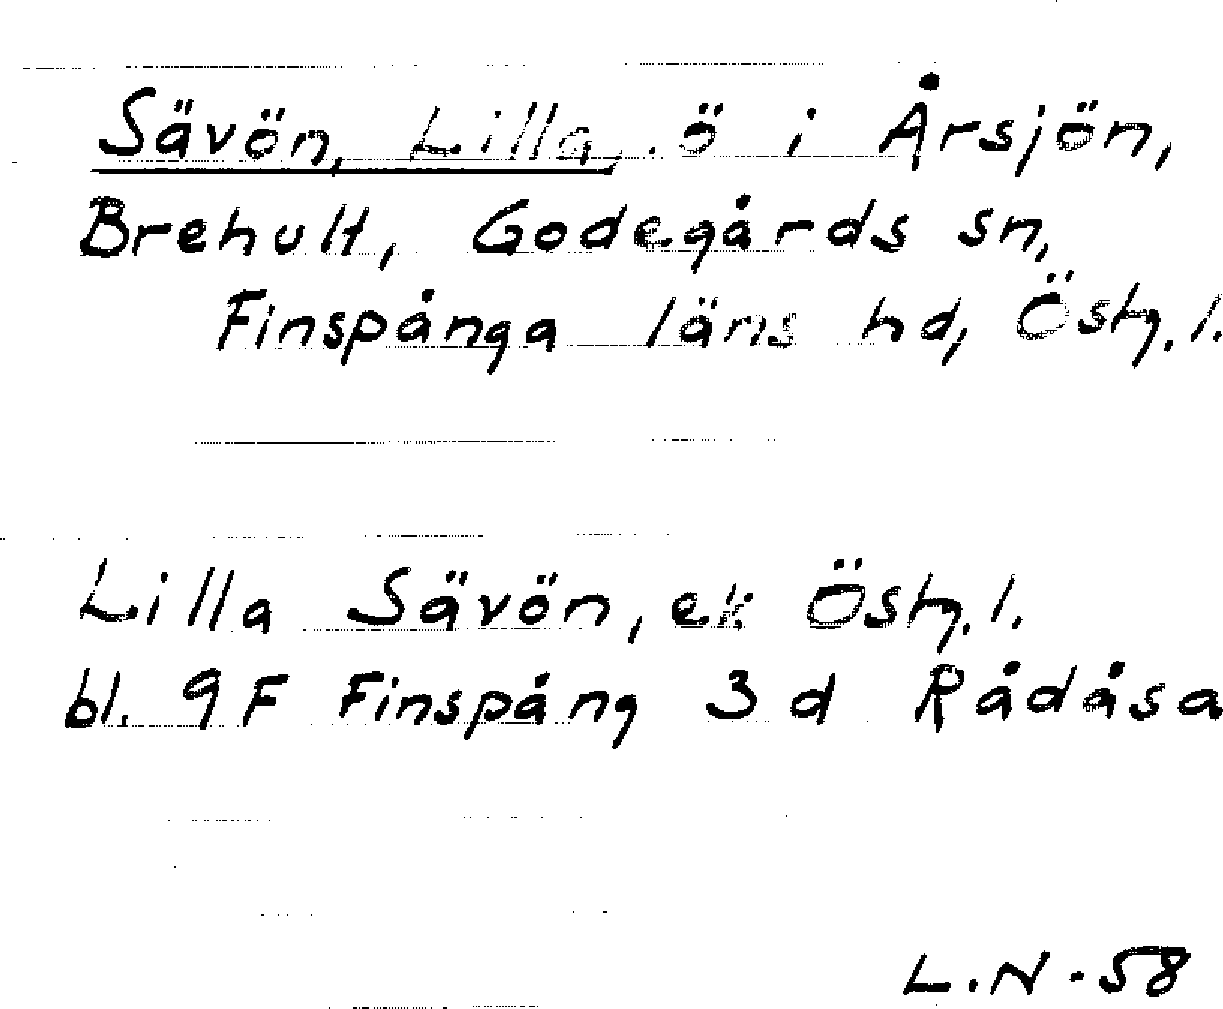 Sävön, Lilla, ö i Årsjön,
Brehult, Godegårds sn,
Finspånga läns hd, Östg.l.
Lilla Sävön, ek Östg.l.
bl. 9F Finspång 3d Rådåsa
L.N-58